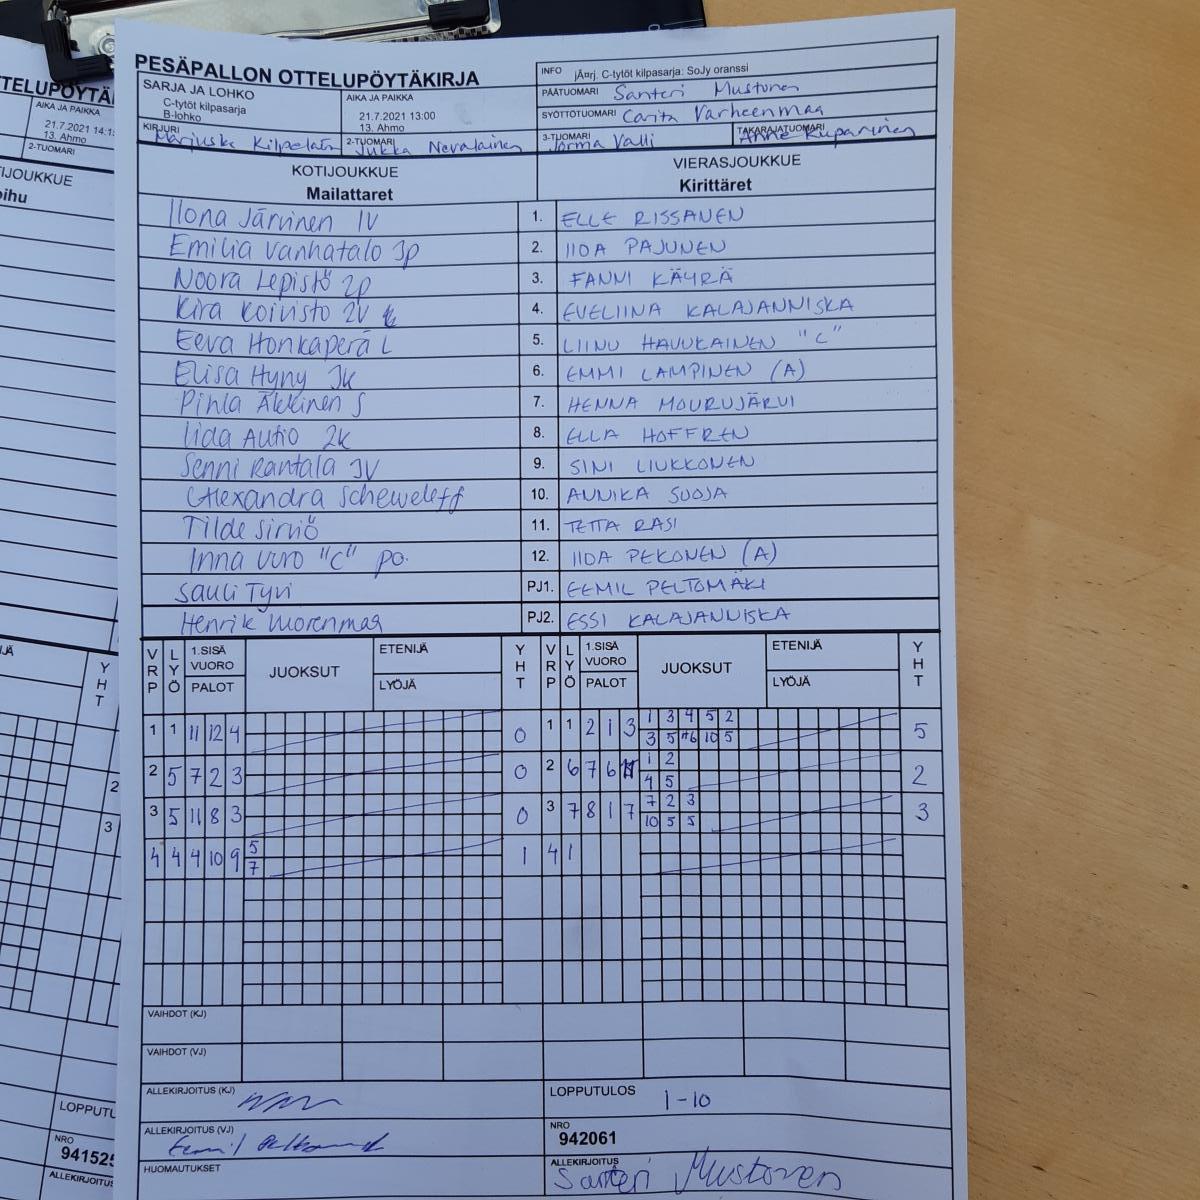 PESÄPALLON OTTELUPÖYTÄKIRJA
SARJA JA LOHKO
C-tytöt kilpasarja
B-lohko
AIKA JA PAIKKA
21.7.2021 13:00
13. Ahmo
INFO jÃ¤rj. C-tytöt kilpasarja: SoJy oranssi
PÄÄTUOMARI Santeri Mustonen
SYÖTTÖTUOMARI Carita Varheenmaa
KIRJURI Marjuska Kilpeläin
2-TUOMARI Jukka Nevalainen
3-TUOMARI Jorma Valli
TAKARAJATUOMARI Anne Kuparinen
KOTIJOUKKUE
Mailattaret
VIERASJOUKKUE
Kirittäret
Ilona Järvinen 1V 1. ELLE RISSANEN
Emilia Vanhatalo 3p 2. IIDA PAJUNEN
Noora Lepistö 2p 3. FANNI KÄYRÄ
Kira Koivisto 2V 4. EVELIINA KALAJANNISKA
Eeva Honkaperä L 5. LIINU HAVUKAINEN "C"
Elisa Hyny 3k 6. EMMI LAMPINEN (A)
Pihla Äkkinen S 7. HENNA MOURUJÄRVI
Iida Autio 2k 8. ELLA HOFFREN
Senni Rantala 3V 9. SINI LIUKKONEN
Alexandra Scheweleff 10. ANNIKA SUOJA
Tilde Sirviö 11. TETTA RASI
Inna Vuro "C" po. 12. IIDA PEKONEN (A)
Sauli Tyvi PJ1. EEMIL PELTOMÄKI
Henrik Morenmaa PJ2. ESSI KALAJANNISKA
VRP LYÖ 1.SISÄ VUORO PALOT JUOKSUT ETENIJÄ LYÖJÄ YHT VRP LYÖ 1.SISÄ VUORO PALOT JUOKSUT ETENIJÄ LYÖJÄ YHT
1 1 11 12 4 0 1 1 2 1 3 1 3 4 5 2 5
3 5 10 5
2 5 7 2 3 0 2 6 7 6 1 2 2
4 5
3 5 11 8 3 0 3 7 8 1 7 7 2 3 3
10 5 5
4 4 4 10 9 5 1 4 1
7
VAIHDOT (KJ)
VAIHDOT (VJ)
ALLEKIRJOITUS (KJ)
LOPPUTULOS 1-10
ALLEKIRJOITUS (VJ)
NRO
942061
HUOMAUTUKSET
ALLEKIRJOITUS
Santeri Mustonen
AIKA JA PAIKKA
13. Ahmo
2-TUOMARI
2
3
YHT
NRO
ALLEKIRJOITUS